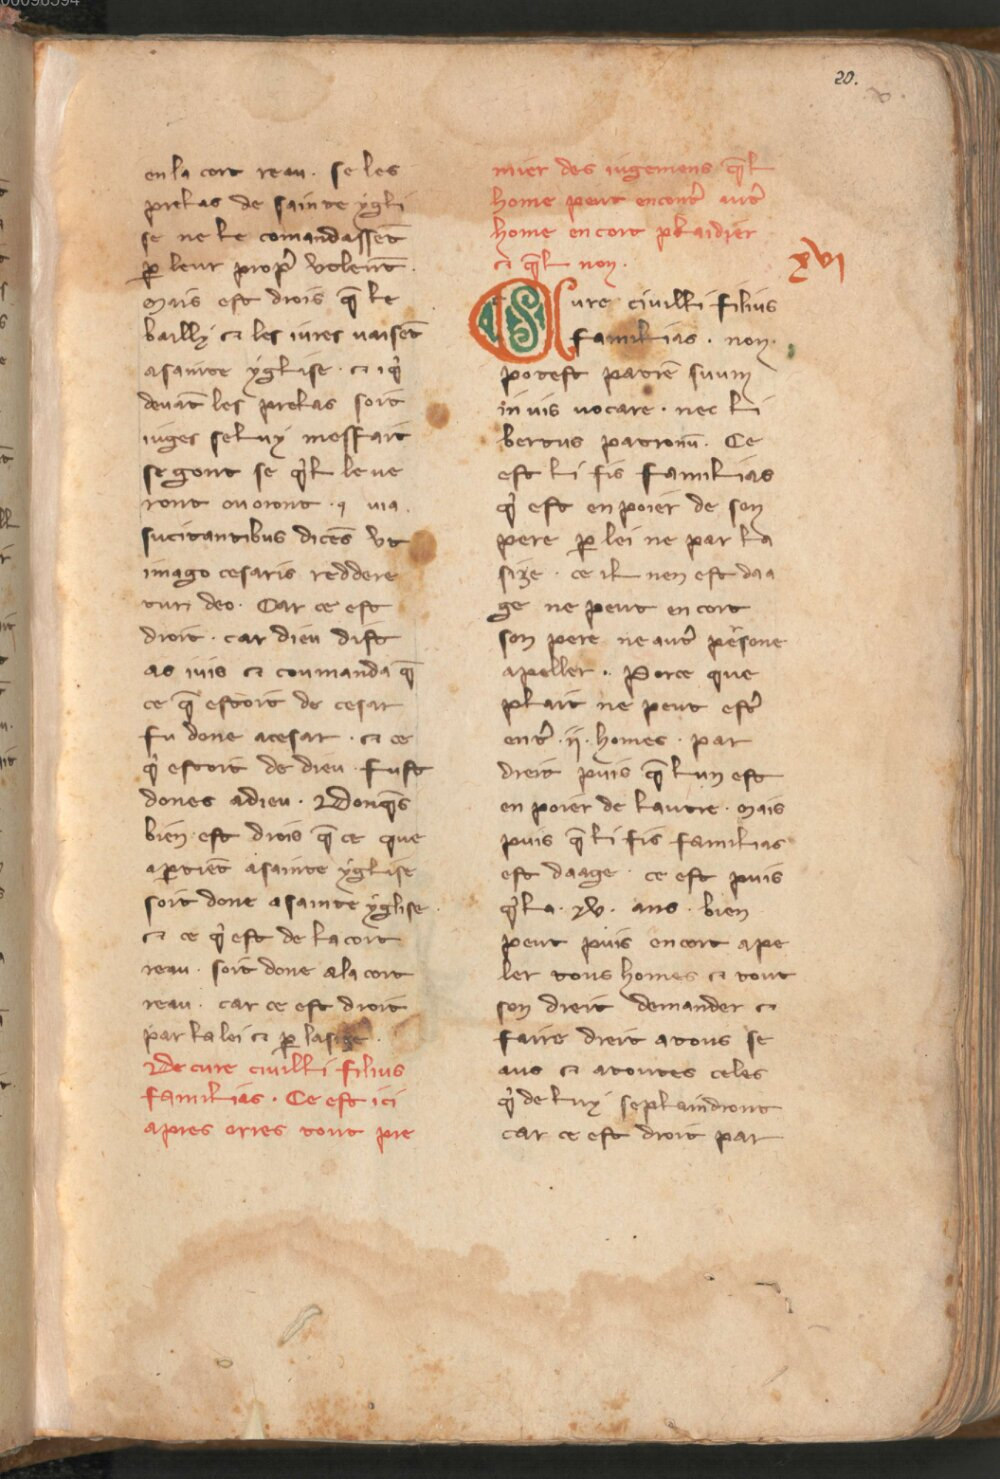 20.
en la cort reau. se les
prelas de sainte ygli
se ne le comandassēt
ꝑ leur propꝰ volentē.
mais est drois q̄ le
bailly ⁊ les iures vaisēt
a sainte yglise. ⁊ iqͥ
deuāt les prelas soit
iuges seluy meffait
segont se qͥl le ue
ront ou oront. ꝯ uia.
sucitantibus dicēs vt
imago cesaris reddere
tur deo. Car ce est
droit. car dieu dist
as iuis ⁊ coumanda q̄
ce q̄ estoit de cesar
fu done a cesar. ⁊ ce
qͥ estoit de dieu. fust
dones a dieu. Adonq̄s
bien est drois q̄ ce que
aꝑtiēt a sainte yglise
soit done a sainte yglise.
⁊ ce qͥ est de la cort
reau. soit done a la cort
reau. car ce est droit
par la lei ⁊ ꝑ lasize.
De iure ciuilli filius
familias. Ce est ici
apres orres tout pre
mier des iugemens q̄l
home peut encontͬ autͬ
home en cort plaidier
⁊ q̄l non.
xvi
Iure ciuilli filius
familias. non
potest patrē suum
in uis uocare. nec li
bertus patronū. Ce
est li fis familias
qͥ est en poier de son
pere ꝑ lei ne par la
size. ce il nen est daa
ge ne peut en cort
son pere ne autͬ persone
apeller. Porce que
plait ne peut estͬ
entͬ .ij. homes. par
dreit puis q̄ lun est
en poier de lautre. mais
puis q̄ li fis familias
est daage. ce est puis
qͥl a .xv. ans. bien
peut puis en cort ape
ler tous homes ⁊ tout
son dreit demander ⁊
faire dreit a tous se
aus ⁊ a toutes celes
qͥ de luy se plaindront
car ce est droit par